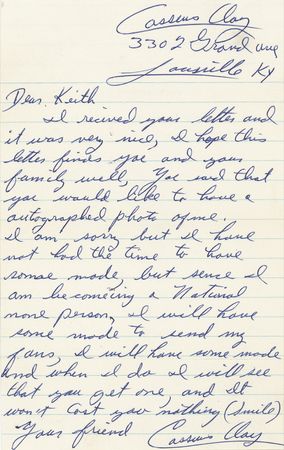 Cassius Clay
3302 Grand ave
Louisville Ky
Dear. Keith
I recived your letter and
it was very nice, I hope this
letter finds you and your
family well, You said that
you would like to have a
autographed photo of me.
I am sorry but I have
not had the time to have
somae made, but sence I
am becomeing a National
none person, I will have
some made to send my
fans, I will have some made
and when I do I will see
that you get one, and It
won't cost you nothing (smile)
Your friend Cassius Clay